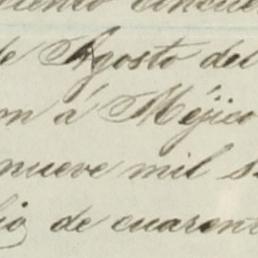 de Agosto del
on á Méjico
nueve mil s
io de cuarent